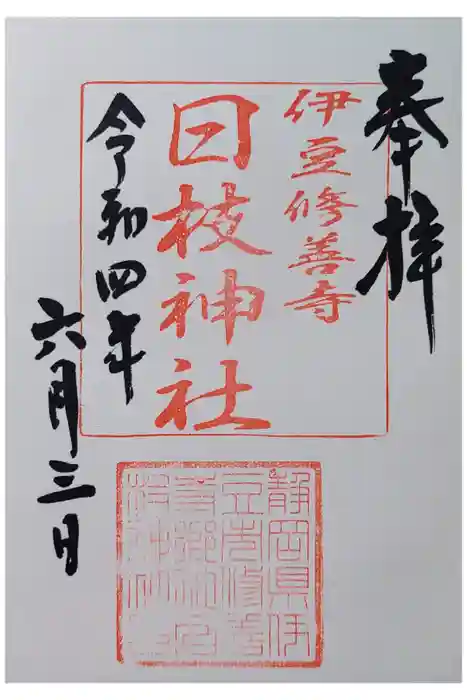 奉拝
伊豆修善寺
日枝神社
令和四年
六月三日
静岡県伊
豆市修善